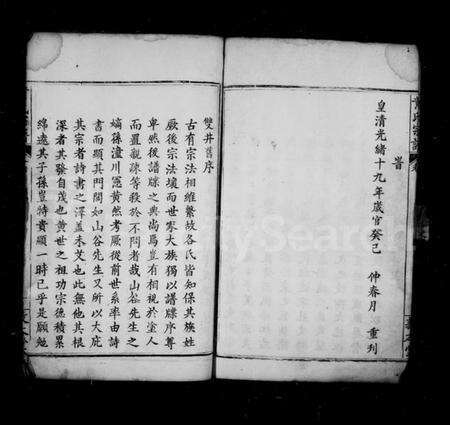 皇清光緒十九年歲官癸巳 仲春月 重刊
雙井舊序
古有宗法相維繫故各氏皆知保其族姓
厥後宗法壞而世家大族獨以譜牒序尊
卑然後譜牒之典尚焉豈有相視於塗人
而置親疎等殺於不問者哉山谷先生之
嫡孫潼川冕黄然考厥從前世系率由詩
書而顯其門閭如山谷先生又所以大庇
其宗者詩書之澤蓋未艾也此無他其根
深者其發自茂也黄世之祖功宗德積累
綿遠其子孫豈特貴顯一時已乎是願勉